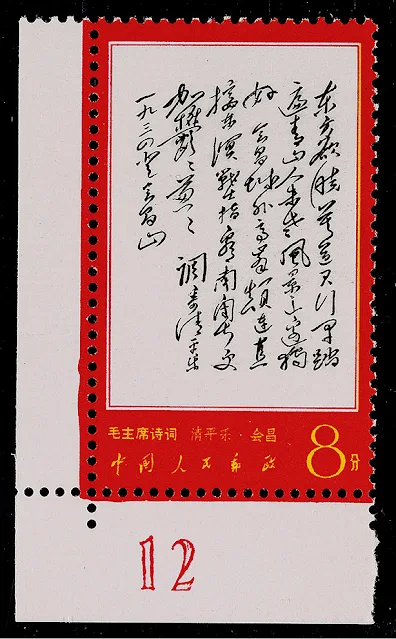 东方欲晓莫道君行早踏
遍青山人未老風景这边独
好 会昌城外高峯颠连直
接东溟戰士指看南粤更
加欝々葱々 调寄清平乐
一九三四登会昌山
毛主席诗词 清平乐·会昌
中国人民邮政
8分
12